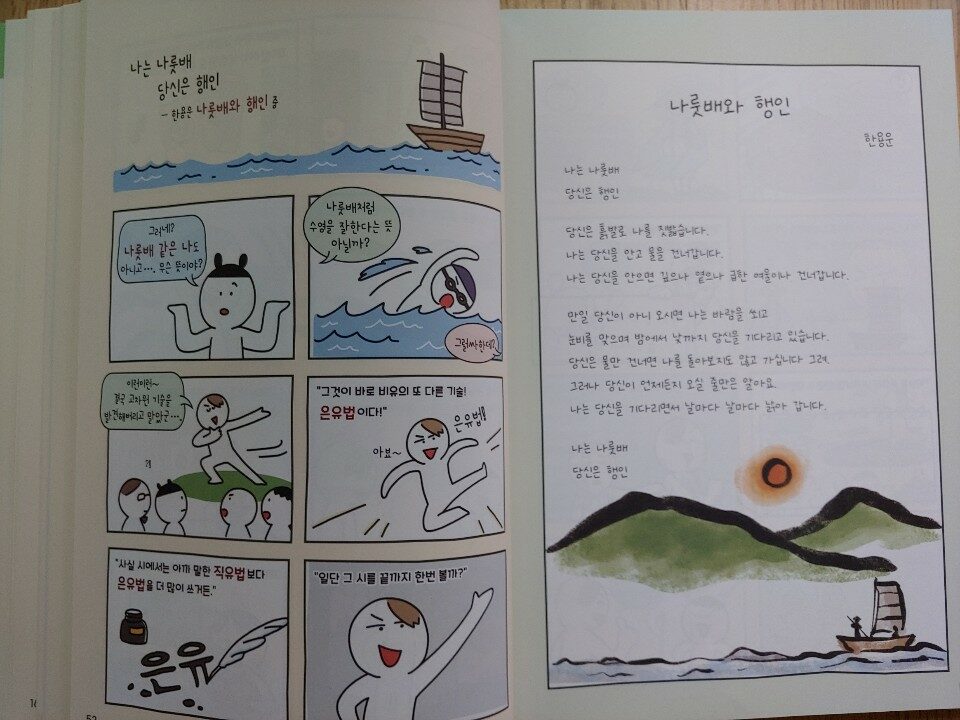 나는 나룻배
당신은 행인
- 한용운 나룻배와 행인 중
그러네?
나룻배 같은 나도
아니고…. 무슨 뜻이야?
나룻배처럼
수영을 잘한다는 뜻
아닐까?
그럴싸한데?
이런이런~
결국 고차원 기술을
발견해버리고 말았군…
?!
"그것이 바로 비유의 또 다른 기술!
은유법이다!"
은유법!
아뵤~
"사실 시에서는 아까 말한 직유법보다
은유법을 더 많이 쓰거든."
은유
"일단 그 시를 끝까지 한번 볼까?"
52
나룻배와 행인
한용운
나는 나룻배
당신은 행인
당신은 흙발로 나를 짓밟습니다.
나는 당신을 안고 물을 건너갑니다.
나는 당신을 안으면 깊으나 옅으나 급한 여울이나 건너갑니다.
만일 당신이 아니 오시면 나는 바람을 쐬고
눈비를 맞으며 밤에서 낮까지 당신을 기다리고 있습니다.
당신은 물만 건너면 나를 돌아보지도 않고 가십니다 그려.
그러나 당신이 언제든지 오실 줄만은 알아요.
나는 당신을 기다리면서 날마다 날마다 낡아 갑니다.
나는 나룻배
당신은 행인